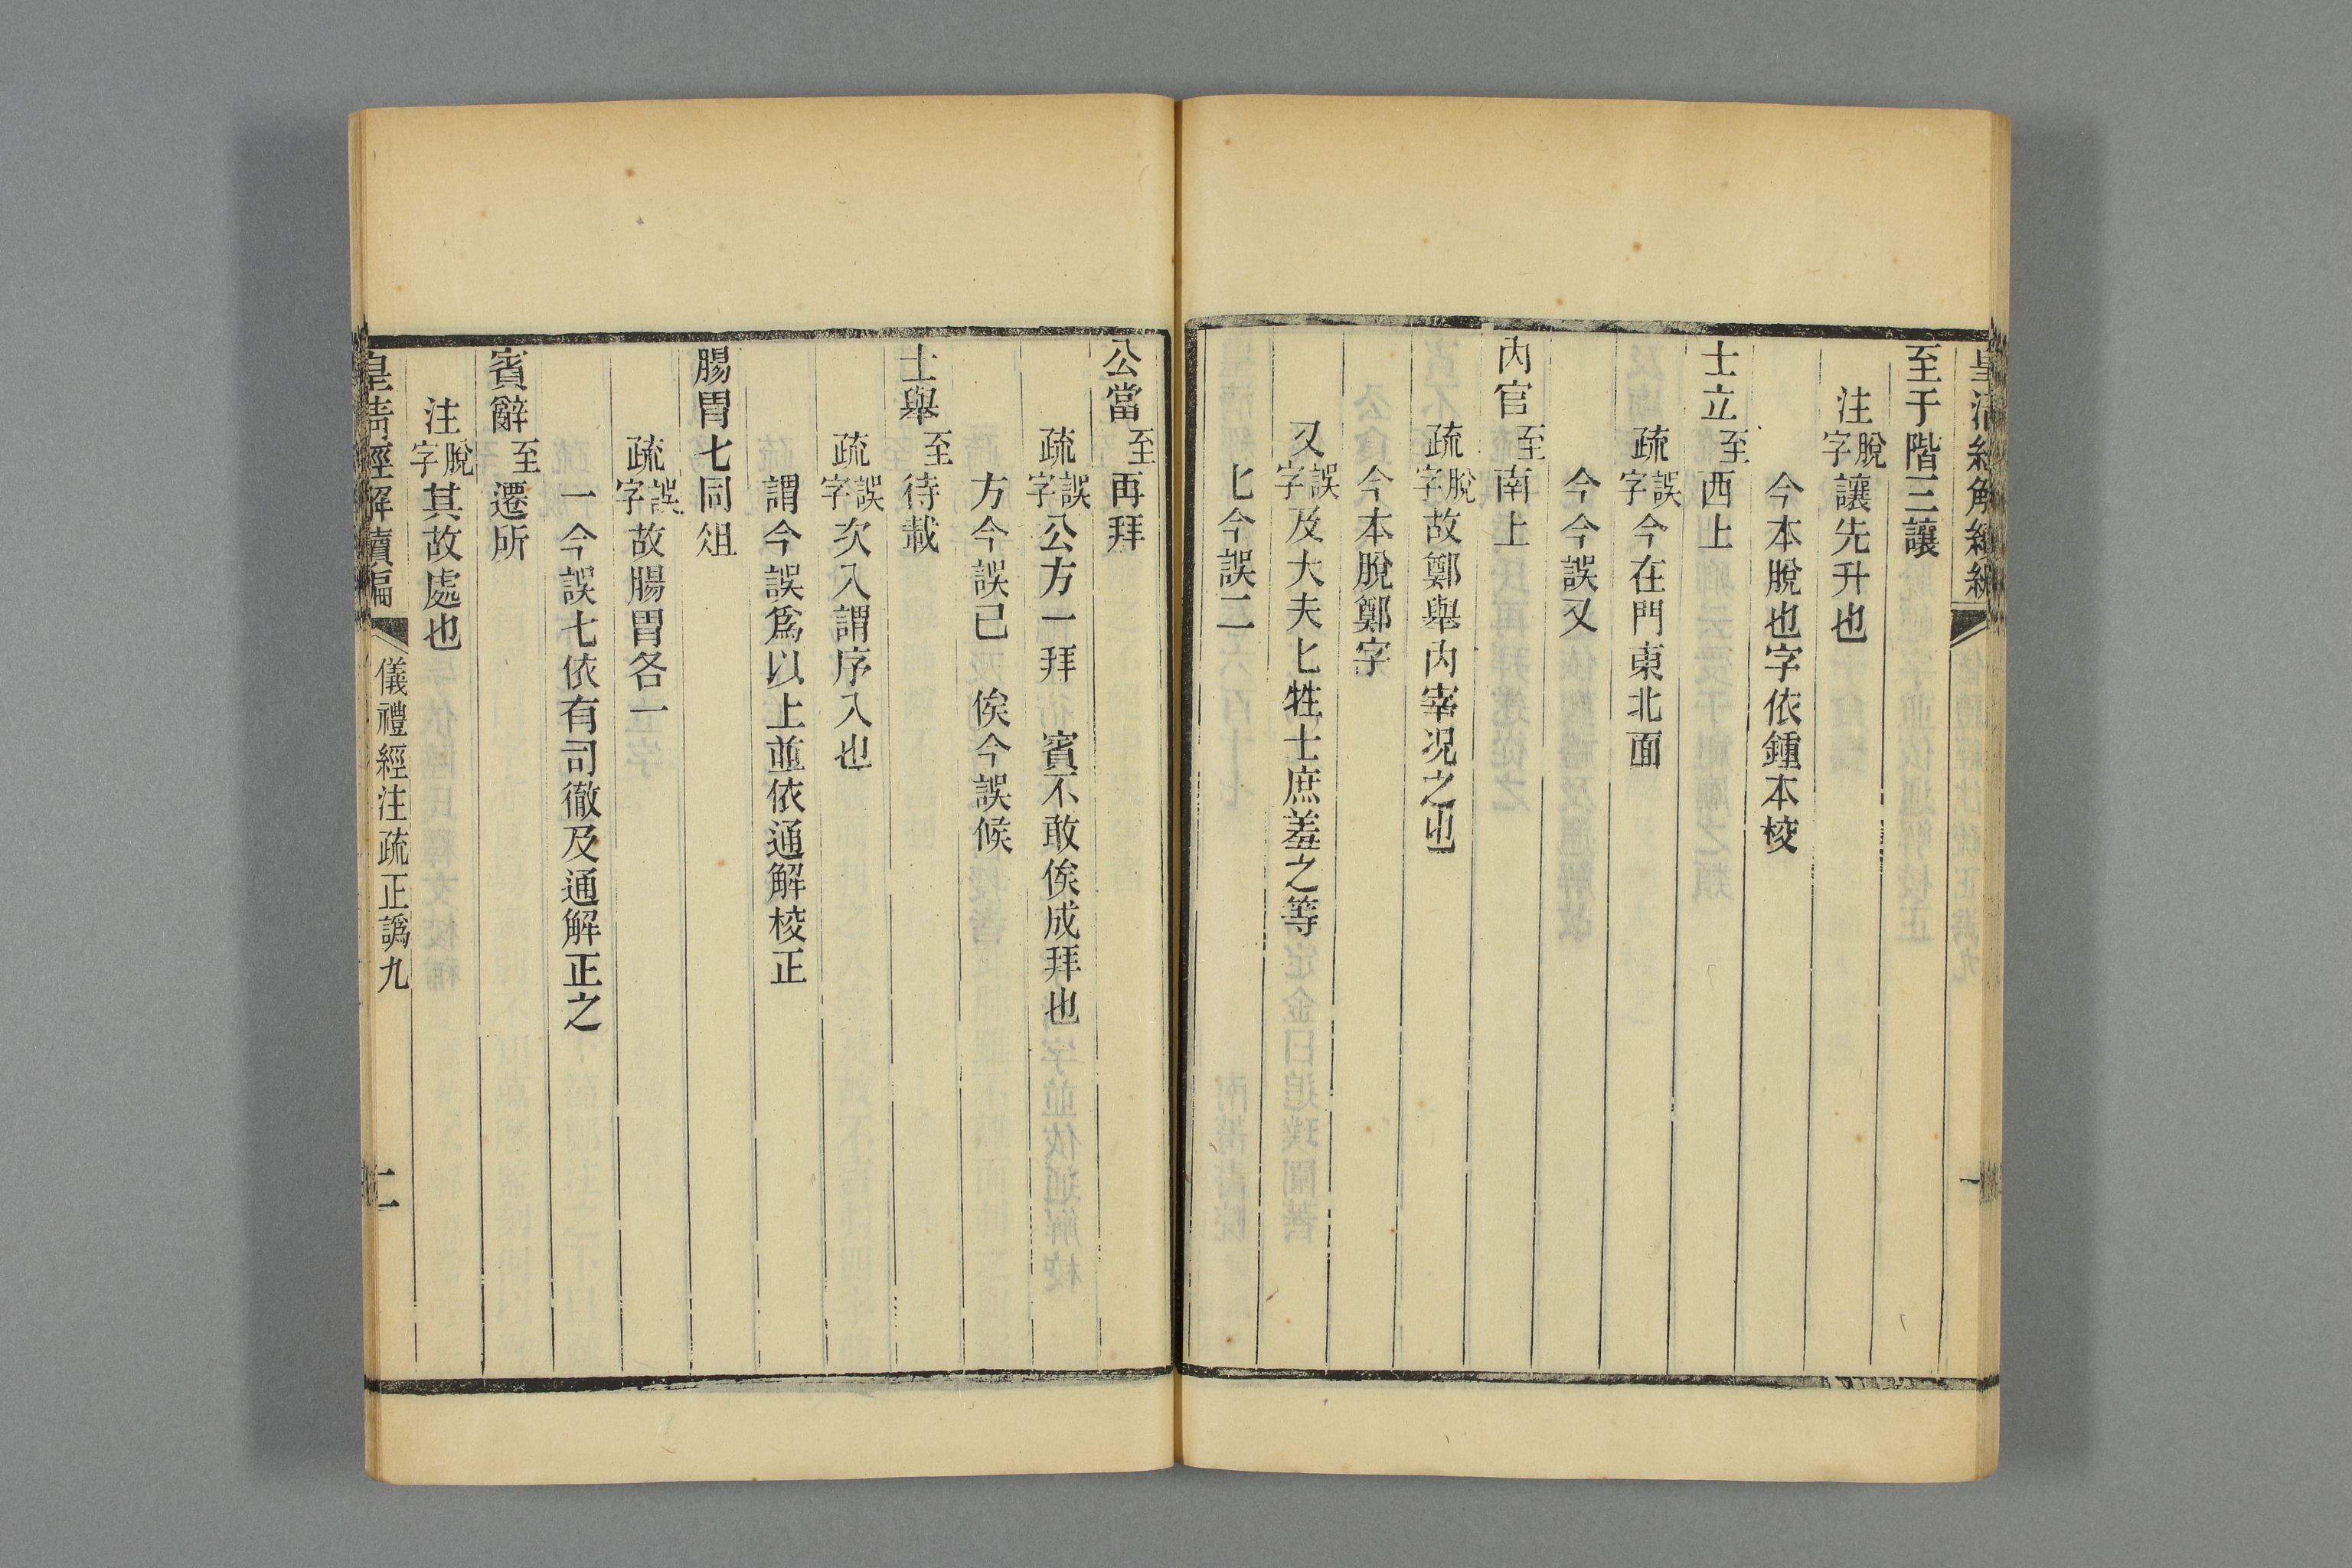 至于階三讓
注脫字讓先升也
今本脫也字依鍾本校
士立至西上
疏誤字今在門東北面
今今誤又
內官至南上
疏脫字故鄭舉內宰況之也
今本脫鄭字
又誤字及大夫匕牲士庶羞之等
匕今誤二
公當至再拜
疏誤字公方一拜 賓不敢俟成拜也
方今誤已 俟今誤候
士舉至待載
疏誤字次入謂序入也
謂今誤為以上並依通解校正
腸胃七同俎
疏誤字故腸胃各一
一今誤七依有司徹及通解正之
賓辭至遷所
注脫字其故處也
皇清經解續編 儀禮經注疏正譌九 二